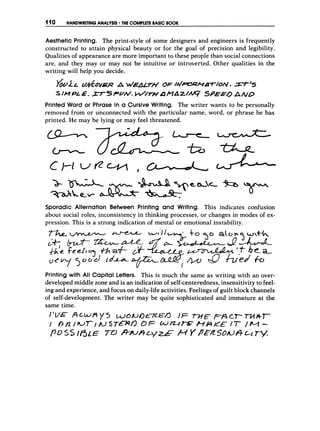 110 HANDWRITING ANALYSIS • THE COMPLETE BASIC BOOK
Aesthetic Printing. The print-style of some designers and engineers is frequently
constructed to attain physical beauty or for the goal of precision and legibility.
Qualities of appearance are more important to these people than social connections
are, and they may or may not be intuitive or introverted. Other qualities in the
writing will help you decide.
YOU'LL UNCOVER A WEALTH OF INFORMATION. IT'S
SIMPLE. IT'S FUN. WITH AMAZING SPEED AND
Printed Word or Phrase in a Cursive Writing. The writer wants to be personally
removed from or unconnected with the particular name, word, or phrase he has
printed. He may be lying or may feel threatened.
On Friday we went
on down to the
CHURCH, and when
I think you should speak to you
rather about that.
Sporadic Alternation Between Printing and Writing. This indicates confusion
about social roles, inconsistency in thinking processes, or changes in modes of ex-
pression. This is a strong indication of mental or emotional instability.
The men were willing to go along with
it but then all of a sudden I had
the feeling that it really wouldn't be a
very good idea after all, no I tried to
Printing with All Capital Letters. This is much the same as writing with an over-
developed middle zone and is an indication of self-centeredness, insensitivity to feel-
ing and experience, and focus on daily-life activities. Feelings of guilt block channels
of self-development. The writer may be quite sophisticated and immature at the
same time.
I'VE ALWAYS WONDERED IF THE FACT THAT
I PRINT INSTEAD OF WRITE MAKE IT IM-
POSSIBLE TO ANALYZE MY PERSONALITY.